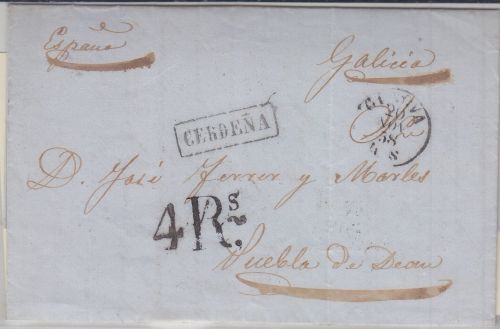 España
Galicia
CERDEÑA
D. José Ferrer y Marles
4 Rs.
Puebla de Dean